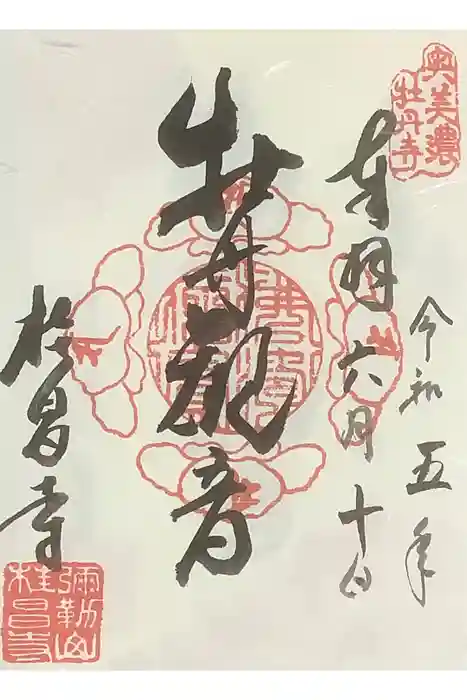 奥美濃
牡丹寺
令和五年
奉拝 六月十日
牡丹観音
桂昌寺
彌勒山
桂昌寺